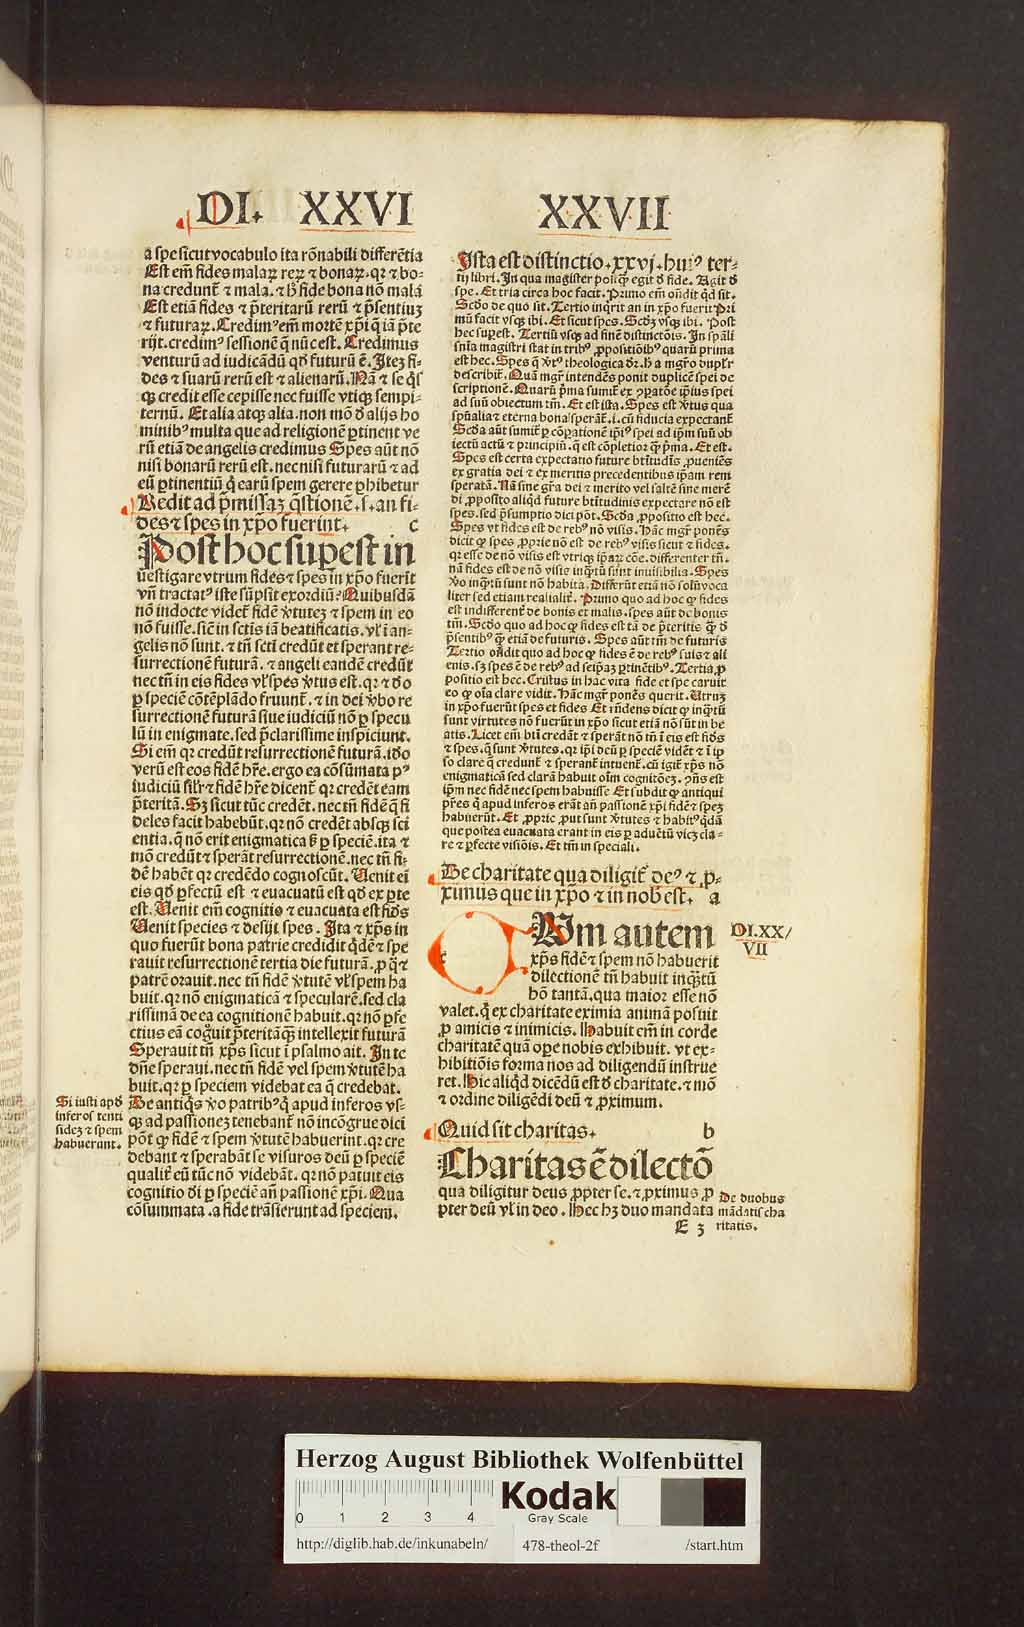 DI. XXVI
XXVII
a spe sicut vocabulo ita rōnabili differētia
Est em̄ fides malaꝝ reꝝ ⁊ bonaꝝ. qꝛ ⁊ bo⸗
na credunt̄ ⁊ mala. ⁊ ħ fide bona nō mala
Est etiā fides ⁊ p̄teritarū rerū ⁊ p̄sentiuꝫ
⁊ futuraꝝ. Credimꝰ em̄ mortē xp̄i q̄ iā p̄te
rijt. credimꝰ sessionē q̄ nūc est. Credimus
venturū ad iudicādū qd̄ futurū ē. Iteꝫ fi⸗
des ⁊ suarū rerū est ⁊ alienarū. Nā ⁊ se q̇s
ꝙ credit esse cepisse nec fuisse vtiqꝫ sempi⸗
ternū. Et alia atqꝫ alia. non mō đ alijs ho
minibꝰ multa que ad religionē ꝑtinent ve
rū etiā de angelis credimus Spes aūt nō
nisi bonarū rerū est. nec nisi futurarū ⁊ ad
eū ꝑtinentiū q̇ earū spem gerere ꝑhibetur
Redit ad p̄missaꝫ q̄stionē. s. an fi⸗
des ⁊ spes in xp̄o fuerint. c
Post hoc suꝑest in
uestigare vtrum fides ⁊ spes in xp̄o fuerit
vn̄ tractatꝰ iste sūpsit exordiū? Quibusdā
nō indocte videt̄ fidē v̄tuteꝫ ⁊ spem in eo
nō fuisse. sicē in sctis iā beatificatis. vl̄ ī an⸗
gelis nō sunt. ⁊ tn̄ scti credūt et sperant re⸗
surrectionē futurā. ⁊ angeli eandē credūt
nec tn̄ in eis fides vl̄ spes v̄tus est. qꝛ ⁊ đo
ꝑ speciē cōtēplādo fruunt̄. ⁊ in dei v̄bo re
surrectionē futurā siue iudiciū nō ꝑ specu
lū in enigmate. sed p̄clarissime inspiciunt.
Si em̄ qꝛ credūt resurrectionē futurā. iđo
verū est eos fidē hr̄e. ergo ea cōsūmata pꝰ
iudiciū silr̄ ⁊ fidē hr̄e dicent̄ qꝛ credēt eam
p̄teritā. Sꝫ sicut tūc credēt. nec tn̄ fidē q̄ fi
deles facit habebūt. qꝛ nō credēt absqꝫ sci
entia. q̄ nō erit enigmatica ꝑ speciē. ita ⁊
mō credūt ⁊ sperāt resurrectionē. nec tn̄ fi⸗
dē habēt qꝛ credēdo cognoscūt. Uenit ei
eis qđ ꝑfectū est ⁊ euacuatū est qđ ex ꝑte
est. Uenit em̄ cognitio ⁊ euacuata est fides
Uenit species ⁊ desijt spes. Ita ⁊ xp̄s in
quo fuerūt bona patrie credidit q̇dē ⁊ spe
rauit resurrectionē tertia die futurā. ꝓ q̄ ⁊
patrē orauit. nec tn̄ fidē v̄tutē vl̄ spem ha
buit. qꝛ nō enigmaticā ⁊ specularē. sed cla
rissimā de ea cognitionē habuit. qꝛ nō ꝑfe
ctius eā cog̊uit p̄teritā q̄ꝫ intellexit futurā
Sperauit tn̄ xp̄s sicut ī psalmo ait. In te
dn̄e speraui. nec tn̄ fidē vel spem v̄tutē ha
buit. qꝛ ꝑ speciem videbat ea q̄ credebat.
De antiq̇s v̄o patribꝰ q̇ apud inferos vs⸗
qꝫ ad passioneꝫ tenebant̄ nō incōgrue dici
pōt ꝙ fidē ⁊ spem v̄tutē habuerint. qꝛ cre
debant ⁊ sperabāt se visuros deū ꝑ speciē
qualit̄ eū tūc nō videbāt. qꝛ nō patuit eis
cognitio di ꝑ speciē an̄ passionē xp̄i. Qua
cōsummata. a fide trāsierunt ad speciem.
Si iusti apđ
inferos tenti
fideꝫ ⁊ spem
habuerunt.
Ista est distinctio. xxvj. huiꝰ ter⸗
tij libri. In qua magister postꝙ̄ egit đ fide. Agit đ
spe. Et tria circa hoc facit. Primo em̄ on̄dit qđ sit.
Scđo de quo sit. Tertio inq̇rit an in xp̄o fuerit Pri
mū facit vsqꝫ ibi. Et sicut spes. Scđꝫ vsqꝫ ibi. Post
hec suꝑest. Tertiū vsqꝫ ad finē distinctōis. In spāli
sn̄ia magistri stat in tribꝰ ꝓpositiōibꝰ quarū prima
est hec. Spes q̄ v̄tꝰ theologica dr̄. ħ a mgr̄o duplr̄
describit̄. Quā mgr̄ intendēs ponit duplicē spei de
scriptionē. Quarū p̄ma sumit̄ ex ꝯꝑatōe ipsius spei
ad suū obiectum tm̄. Et est ista. Spes est v̄tus qua
spūalia ⁊ eterna bona sperāt̄. i. cū fiducia expectant̄
Scđa aūt sumit̄ ꝑ cōꝑationē ip̄iꝰ spei ad ip̄m suū ob
iectū actū ⁊ principiū. q̄ est cōpletior q̄ꝫ p̄ma. Et est.
Spes est certa expectatio future bt̄itudīs ꝓueniēs
ex gratia dei ⁊ ex meritis precedentibus ip̄am rem
speratā. Nā sine gr̄a dei ⁊ merito vel saltē sine merē
di ꝓposito aliqđ future bt̄itudinis expectare nō est
spes. sed p̄sumptio dici pōt. Scđa ꝓpositio est hec.
Spes vt fides est de rebꝰ nō visis. Hāc mgr̄ ponēs
dicit ꝙ spes ꝓprie nō est de rebꝰ visis sicut ⁊ fides.
qꝛ esse de nō visis est vtriqꝫ ip̄aꝝ cōe. differenter tn̄.
nā fides est de nō visis inq̄tū sunt inuisibilia. Spes
v̄o inq̄tū sunt nō habita. Differūt etiā nō solū voca
liter sed etiam realiter. Primo quo ad hoc ꝙ fides
est indifferent̄ de bonis et malis. spes aūt de bonis
tm̄. Scđo quo ad hoc ꝙ fides est tā de p̄teritis q̄ꝫ đ
p̄sentibꝰ q̄ꝫ etiā de futuris. Spes aūt tm̄ de futuris
Tertio on̄dit quo ad hoc ꝙ fides ē de rebꝰ suis ⁊ ali
enis. sꝫ spes ē de rebꝰ ad seip̄aꝫ ꝑtinētibꝰ. Tertia ꝓ
positio est hec. Cristus in hac vita fide et spe caruit
eo ꝙ oīa clare vidit. Hāc mgr̄ ponēs querit. Utruꝫ
in xp̄o fuerūt spes et fides Et rn̄dens dicit ꝙ inq̄tū
sunt virtutes nō fuerūt in xp̄o sicut etiā nō sūt in be
atis. Licet em̄ bt̄i credāt ⁊ sperāt nō tn̄ ī eis est fides
⁊ spes. q̄ sunt v̄tutes. qꝛ ip̄i deū ꝑ speciē vidēt ⁊ ī ip
so clare q̄ credunt̄ ⁊ sperant̄ intuent̄. cū igit̄ xp̄s nō
enigmaticā sed clarā habuit oīm cognitōeꝫ. ꝯn̄s est
ip̄m nec fidē nec spem habuisse Et subdit ꝙ antiqui
pr̄es q̄ apud inferos erāt an̄ passionē xp̄i fidē ⁊ speꝫ
habuerūt. Et ꝓprie put sunt v̄tutes ⁊ habitꝰ q̇dā
que postea euacuata erant in eis ꝑ aduētū vicꝫ cla⸗
re ⁊ ꝑfecte visiōis. Et tm̄ in speciali.
De charitate qua diligit̄ deꝰ ⁊ ꝓ⸗
ximus que in xp̄o ⁊ in nob̄ est. a
CUm autem
xp̄s fidē ⁊ spem nō habuerit
dilectionē tn̄ habuit inq̄ꝫtū
hō tantā. qua maior esse nō
valet. q̇ ex charitate eximia animā posuit
ꝓ amicis ⁊ inimicis. Habuit em̄ in corde
charitatē quā oꝑe nobis exhibuit. vt ex⸗
hibitiōis forma nos ad diligendū instrue
ret. Hic aliqđ dicēdū est đ charitate. ⁊ mō
⁊ ordine diligēdi deū ⁊ ꝓximum.
Quid sit charitas. b
Charitas ē dilectō
qua diligitur deus ꝓpter se. ⁊ ꝓximus ꝓ
pter deū vl̄ in deo. Hec hꝫ duo mandata
E 3
DI. XX/
VII
De duobus
mādatis cha
ritatis.
Herzog August Bibliothek Wolfenbüttel
0 1 2 3 4
Kodak
Gray Scale
http://diglib.hab.de/inkunabeln/ 478-theol-2f /start.htm